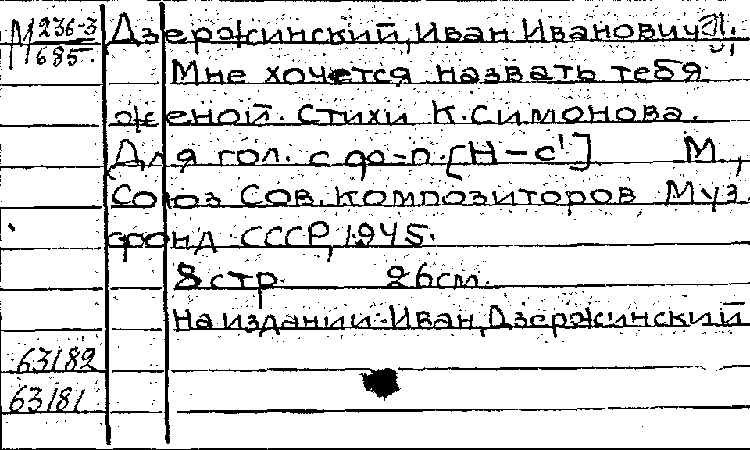 М 236-3
685.
Дзержинский, Иван Иванович
Мне хочется назвать тебя
женой. Стихи К. Симонова.
Для гол. с фо-п. [Н - с¹] М.,
Союз Сов. композиторов Муз
фонд СССР, 1945.
8 стр. 26 см.
На издании: Иван Дзержинский
63182
63181